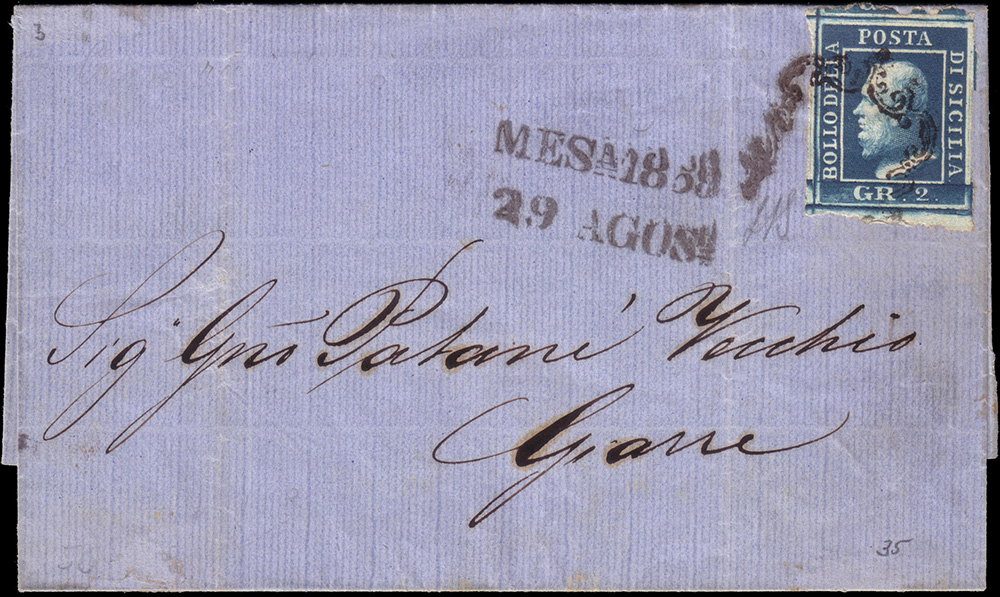 3
BOLLO DELLA
POSTA
DI SICILIA
GR. 2.
MESᴬ 1859
29 AGOSᵗᵒ
Sig Gnō Patanè Vecchio
Giarre
35